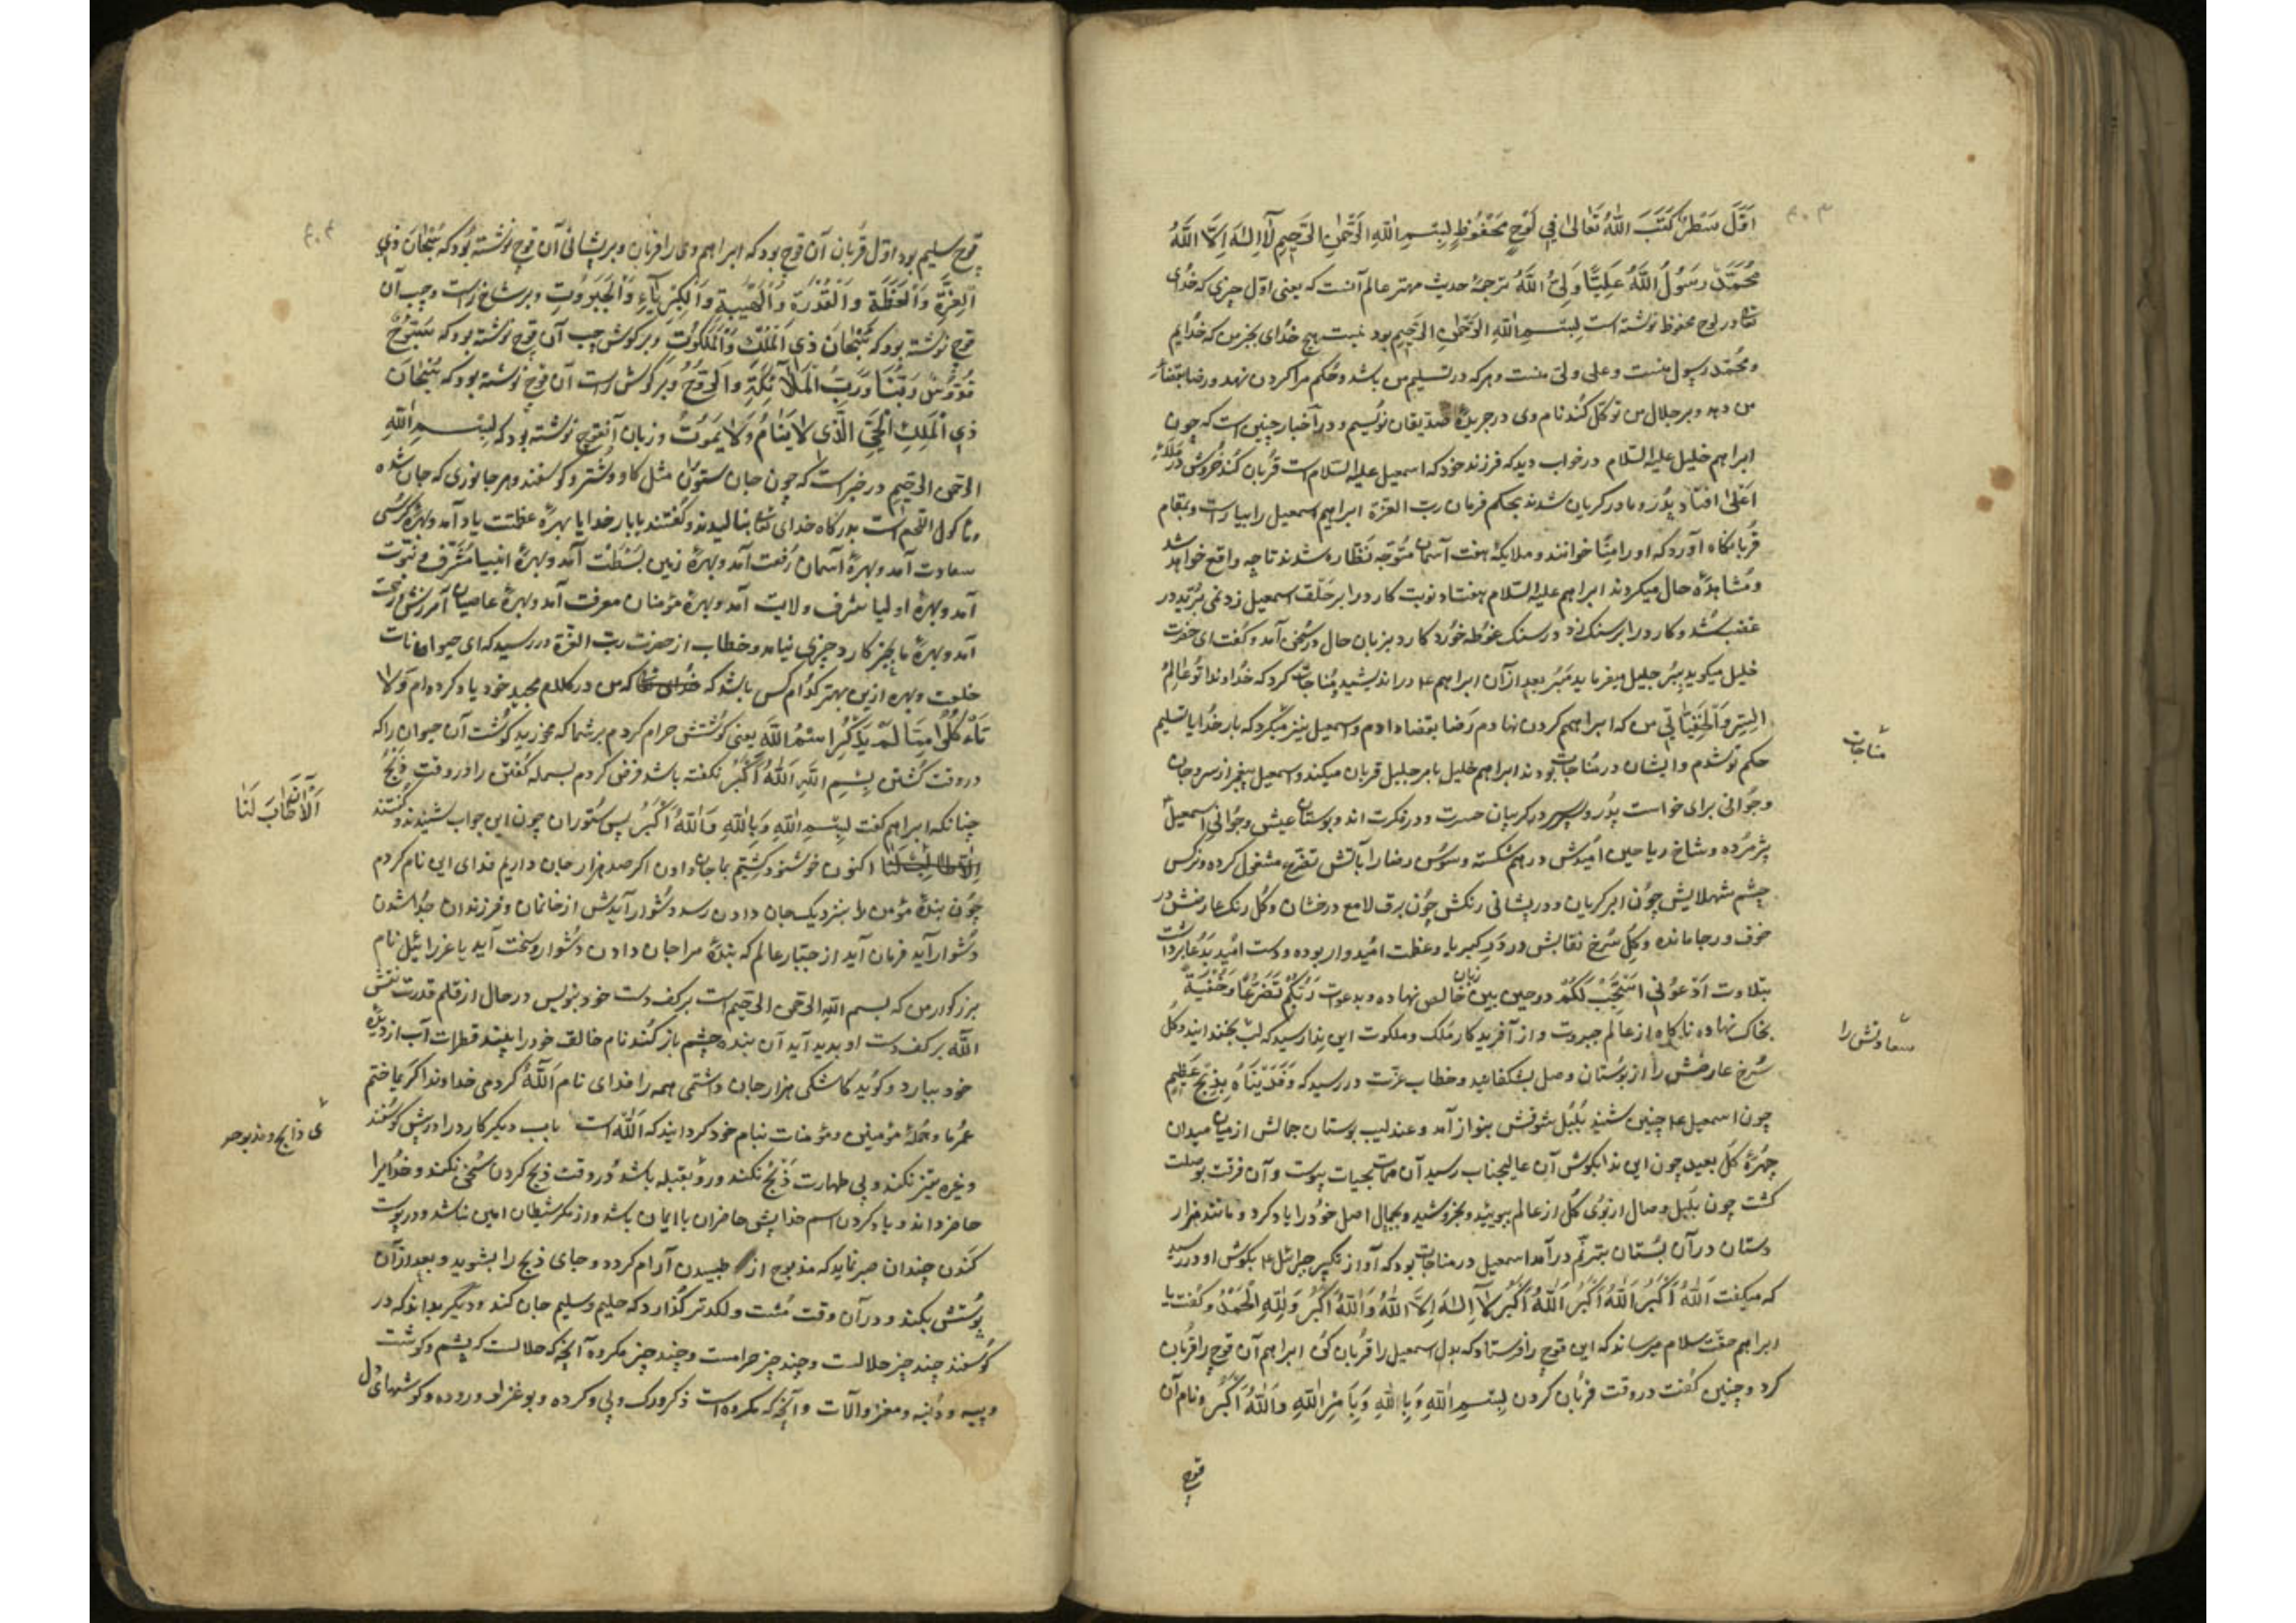 اَوَّلَ سَطْرٍ كَتَبَ اللّٰهُ تَعَالىٰ فِي لَوْحٍ مَحْفُوظٍ لِبِسْمِ اللّٰهِ الرَّحْمٰنِ الرَّحِيمِ لَآ اِلٰهَ اِلَّا اللّٰهُ
مُحَمَّدٌ رَسُولُ اللّٰهِ عَلِيًّا وَلِيُّ اللّٰهِ ترجمهٔ حدیث مهتر عالم آنست که یعنی اوّل چیزی که خدای
تعالی در لوح محفوظ نوشته است لِبِسْمِ اللّٰهِ الرَّحْمٰنِ الرَّحِيمِ بود نیست هیچ خدای بجز من که خدایم
و محمّد رسول منست و علی ولی منست و هر که در تسلیم من باشد و حُکم مرا گردن نهد و رضا بقضاء
من دهد و بر جلال من توکّل کُند نام وی در جریدهٔ صدّیقان نویسم و در اَخبار چنین است که چون
ابراهیم خلیل علیه السّلام در خواب دید که فرزند خود که اسمعیل علیه السّلام است قُربان کُند خُروش در ملأ
اَعْلیٰ افتاد پدُر و مادر گریان شدند بحکم فرمان ربّ العزّة ابراهیم اسمعیل را بیاراست و بمقام
قُربانگاه آورد که او را مِنًا خوانند و ملایکهٔ هفت آسمان مُتوجّه نَظّاره شدند تا چه واقع خواهد شد
و مُشاهدَهٔ حال میکردند ابراهیم علیه السّلام هفتاد نوبت کارد را بر حَلْق اسمعیل زد نمی بُرّید در
غضب شُد و کارد را بر سنک زد در سنک غوُطه خوُرد کارد بزبان حال در سُخن آمد و گفت ای حضرت
خلیل میکوید بِبُر جلیل میفرماید مَبُر بعد از آن ابراهیم ع در اندیشید مُناجات کرد که خُداوندا توُ عالِمُ
السِّرِّ وَالْخَفِيَّاتی من که ابراهیمم کردن نهادم رَضا بقضا دادم و اسمعیل نیز میگرد که بار خُدایا تسلیم
حکم تو شدم و ایشان در مُناجات بودند ابراهیم خلیل با مر جلیل قربان میکند و اسمعیل بیخبر از سر و جان
و جُوانی برای خواست پدُر و پسر در کریبان حسرت و در فکرت اند و بوستان عیش و جُوانی اسمعیل
پژمرُده و شاخ ریاحین امیدش درهم شکسته و سوُسن رضا را با تش تضرّع مشغول کرده و نرکس
چشم شهلایش چوُن ابر کریان و در پیشانی رنکش چوُن برق لامع درخشان و کُل رنک عارضش در
خوف و رجا مانده و کُل سُرخ نقابش در دَیر کبریا و عظمت امُیدوار بوده و دست امُید بَدُعا برداشت
بتلاوت اُدْعُونِي اَسْتَجِبْ لَكُمْ در حین بین زبان خالص نهاده و بدعوت رَبَّكُمْ تَضَرُّعًا وَخُفْيَةً
بخاک نهاده ناکاه از عالم جبروت و از آفریدکار مُلک و ملکوت این ندا رسید که لب بخند ایند و کل
سُرخ عارضش را از بوُستان وصل بشکفانید و خطاب عزّت در رسید که وَفَدَيْنَاهُ بِذِبْحٍ عَظِيمٍ
چون اسمعیل ع چنین شنید بُلبُل شوقش بنواز آمد و عندلیب بوستان جمالش از میان میدان
چهرهٔ کُل بعید چون این ندا بکوش آن عالیجناب رسید آن ممات بحیات پیوست و آن فرقت بوصلت
کشت چون بلبل وصال از بوُی کُل از عالم ببوئید و بخروشید و بجمال اصل خود را یاد کرد و مانند هزار
دستان در آن بُستان بترنّم درآمد اسمعیل در مناجات بود که آواز تکبیر جبرائیل ع بکوش او در رسید
که میکفت اَللّٰهُ اَكْبَرُ اَللّٰهُ اَكْبَرُ اَللّٰهُ اَكْبَرُ لَا اِلٰهَ اِلَّا اللّٰهُ وَاللّٰهُ اَكْبَرُ وَلِلّٰهِ الْحَمْدُ و گفت یا
ابراهیم حقّت سلام میرساند که این قوچ را فرستاد که بدل اسمعیل را قُربان کُن ابراهیم آن قوچ را قُربان
کرد و چنین کُفت در وقت قربُان کردن لِبِسْمِ اللّٰهِ وَبِاللّٰهِ وَبِاَمْرِ اللّٰهِ وَاللّٰهُ اَكْبَرُ و نام آن
قوچ
مناجات
سعادتش را
قوچ سلیم بود اوّل قُربان آن قوچ بود که ابراهیم وی را قربان و بر پیشانی آن قوچ نوشته بُود که سُبْحَانَ ذِي
الْعِزَّةِ وَالْعَظَمَةِ وَالْقُدْرَةِ وَالْهَيْبَةِ وَالْكِبْرِيَآءِ وَالْجَبَرُوتِ و بر شاخ راست و چپ آن
قوچ نوشته بود که سُبْحَانَ ذِي الْمُلْكِ وَالْمَلَكُوتِ و بر کوش چپ آن قوچ نوشته بود که سُبُّوحٌ
قُدُّوسٌ رَبُّنَا وَرَبُّ الْمَلَآئِكَةِ وَالرُّوحُ و بر کوش راست آن قوچ نوشته بود که سُبْحَانَ
ذِي الْمَلِكِ الْحَيِّ الَّذِي لَا يَنَامُ وَلَا يَمُوتُ و زبان آنقوچ نوشته بود که لِبِسْمِ اللّٰهِ
الرَّحمٰن الرَّحیمِ در خبر است که چون جان ستوران مثل کاو و شتر و کوسفند و هر جانوری که جان شده
و ما کول اللّحم است بدرکاه خدای تعالی بنالیدند و کُفتند بابار خدایا بهرهٔ عظمت یاد آمد و بهرهٔ کُرسی
سعادت آمد و بهرهٔ آسمان رَفعت آمد و بهرهٔ زمین بَسْطَت آمد و بهرهٔ انبیا مُشَرّف و نبوّت
آمد و بهرهٔ اولیا شرف ولایت آمد و بهرهٔ مؤمنان معرفت آمد و بهرهٔ عاصیان آمرزش و رحمت
آمد و بهرهٔ ما بجز کارد چیزی نیامد و خطاب از حضرت ربّ العزّة در رسید که ای حیوانات
خلعت و بهره ازین بهتر کدُام کس باشد که من در کلام مجید خود یاد کرده ام وَلَا
تَاْكُلُوا مِمَّا لَمْ يُذْكَرِ اسْمُ اللّٰهِ یعنی کوُشتش حرام کردم بر شما که مخورید کوُشت آن حیوان را که
در وقت کُشتن بِسْمِ اللّٰهِ اَللّٰهُ اَكْبَرُ نکفته باشد فرض کردم بسمله کفتن را در وقت ذَبْحُ
چنانکه ابراهیم کفت لِبِسْمِ اللّٰهِ وَبِاللّٰهِ وَاللّٰهُ اَكْبَرُ پس سُتوران چون این جواب شنیدند کُفتند
اکنون خوشنود کشتیم با جان دادن اکر صد هزار جان داریم فدای این نام کردم
چوُن بندهٔ مؤمن را بنزدیک جان دادن رسد دشُوار آیدش از خانمان و فرزندان جدُا شدن
دشُوار آید فرمان آید از جبّار عالم که بندهٔ مرا جان دادن دشُوار و سخت آید یا عزرائیل نام
بزرکوار من که بسم اللّٰه الرحمن الرحیم است بر کف دست خود بنویس در حال از قلم قدرت نقش
اللّٰه بر کف دست او بدید آید آن بنده چشم باز کُند نام خالق خود را بیند قطرات آب از دیدهٔ
خود ببارد و کوُید کاشکی هزار جان داشتمی همه را فدای نام اَللّٰهُ کردمی خداوندا اکر ما ختم
عُمر ما و جُملهٔ مؤمنین و مؤمنات بنام خود کردانید که اَللّٰه است باب دیکر کارد را در پیش کوسفند
و غیره تیز نکند و بی طهارت ذَبْحُ نکند و روُ بقبله باشد و در وقت ذبح کردن سُخن نکند و خدُایرا
حاضر داند و یاد کردن اسم خدا پیش حاضران با ایمان باشد و از مکر شیطان امین نباشد و در پوست
کَندن چندان صبر نماید که مذبوح از طبیدن آرام کردد و جای ذبح را بشوید و بعد از آن
پوُستش بکند و در آن وقت مُشت و لکد تر کُذارد که حلیم و سلیم جان کند و دیگر بداند که در
کوُسفند چند چیز حلالست و چند چیز حرامست و چند چیز مکروه آنچه که حلالست که پشم و کوشت
و پیه و دُنبه و مغز و آلات و آنچه که مکروه است ذکر ورک و پی و کرده و بوغزلو و روده و کوشهای دل
اَلْآنَ طَابَ لَنَا
ی ذابح و مذبوحر